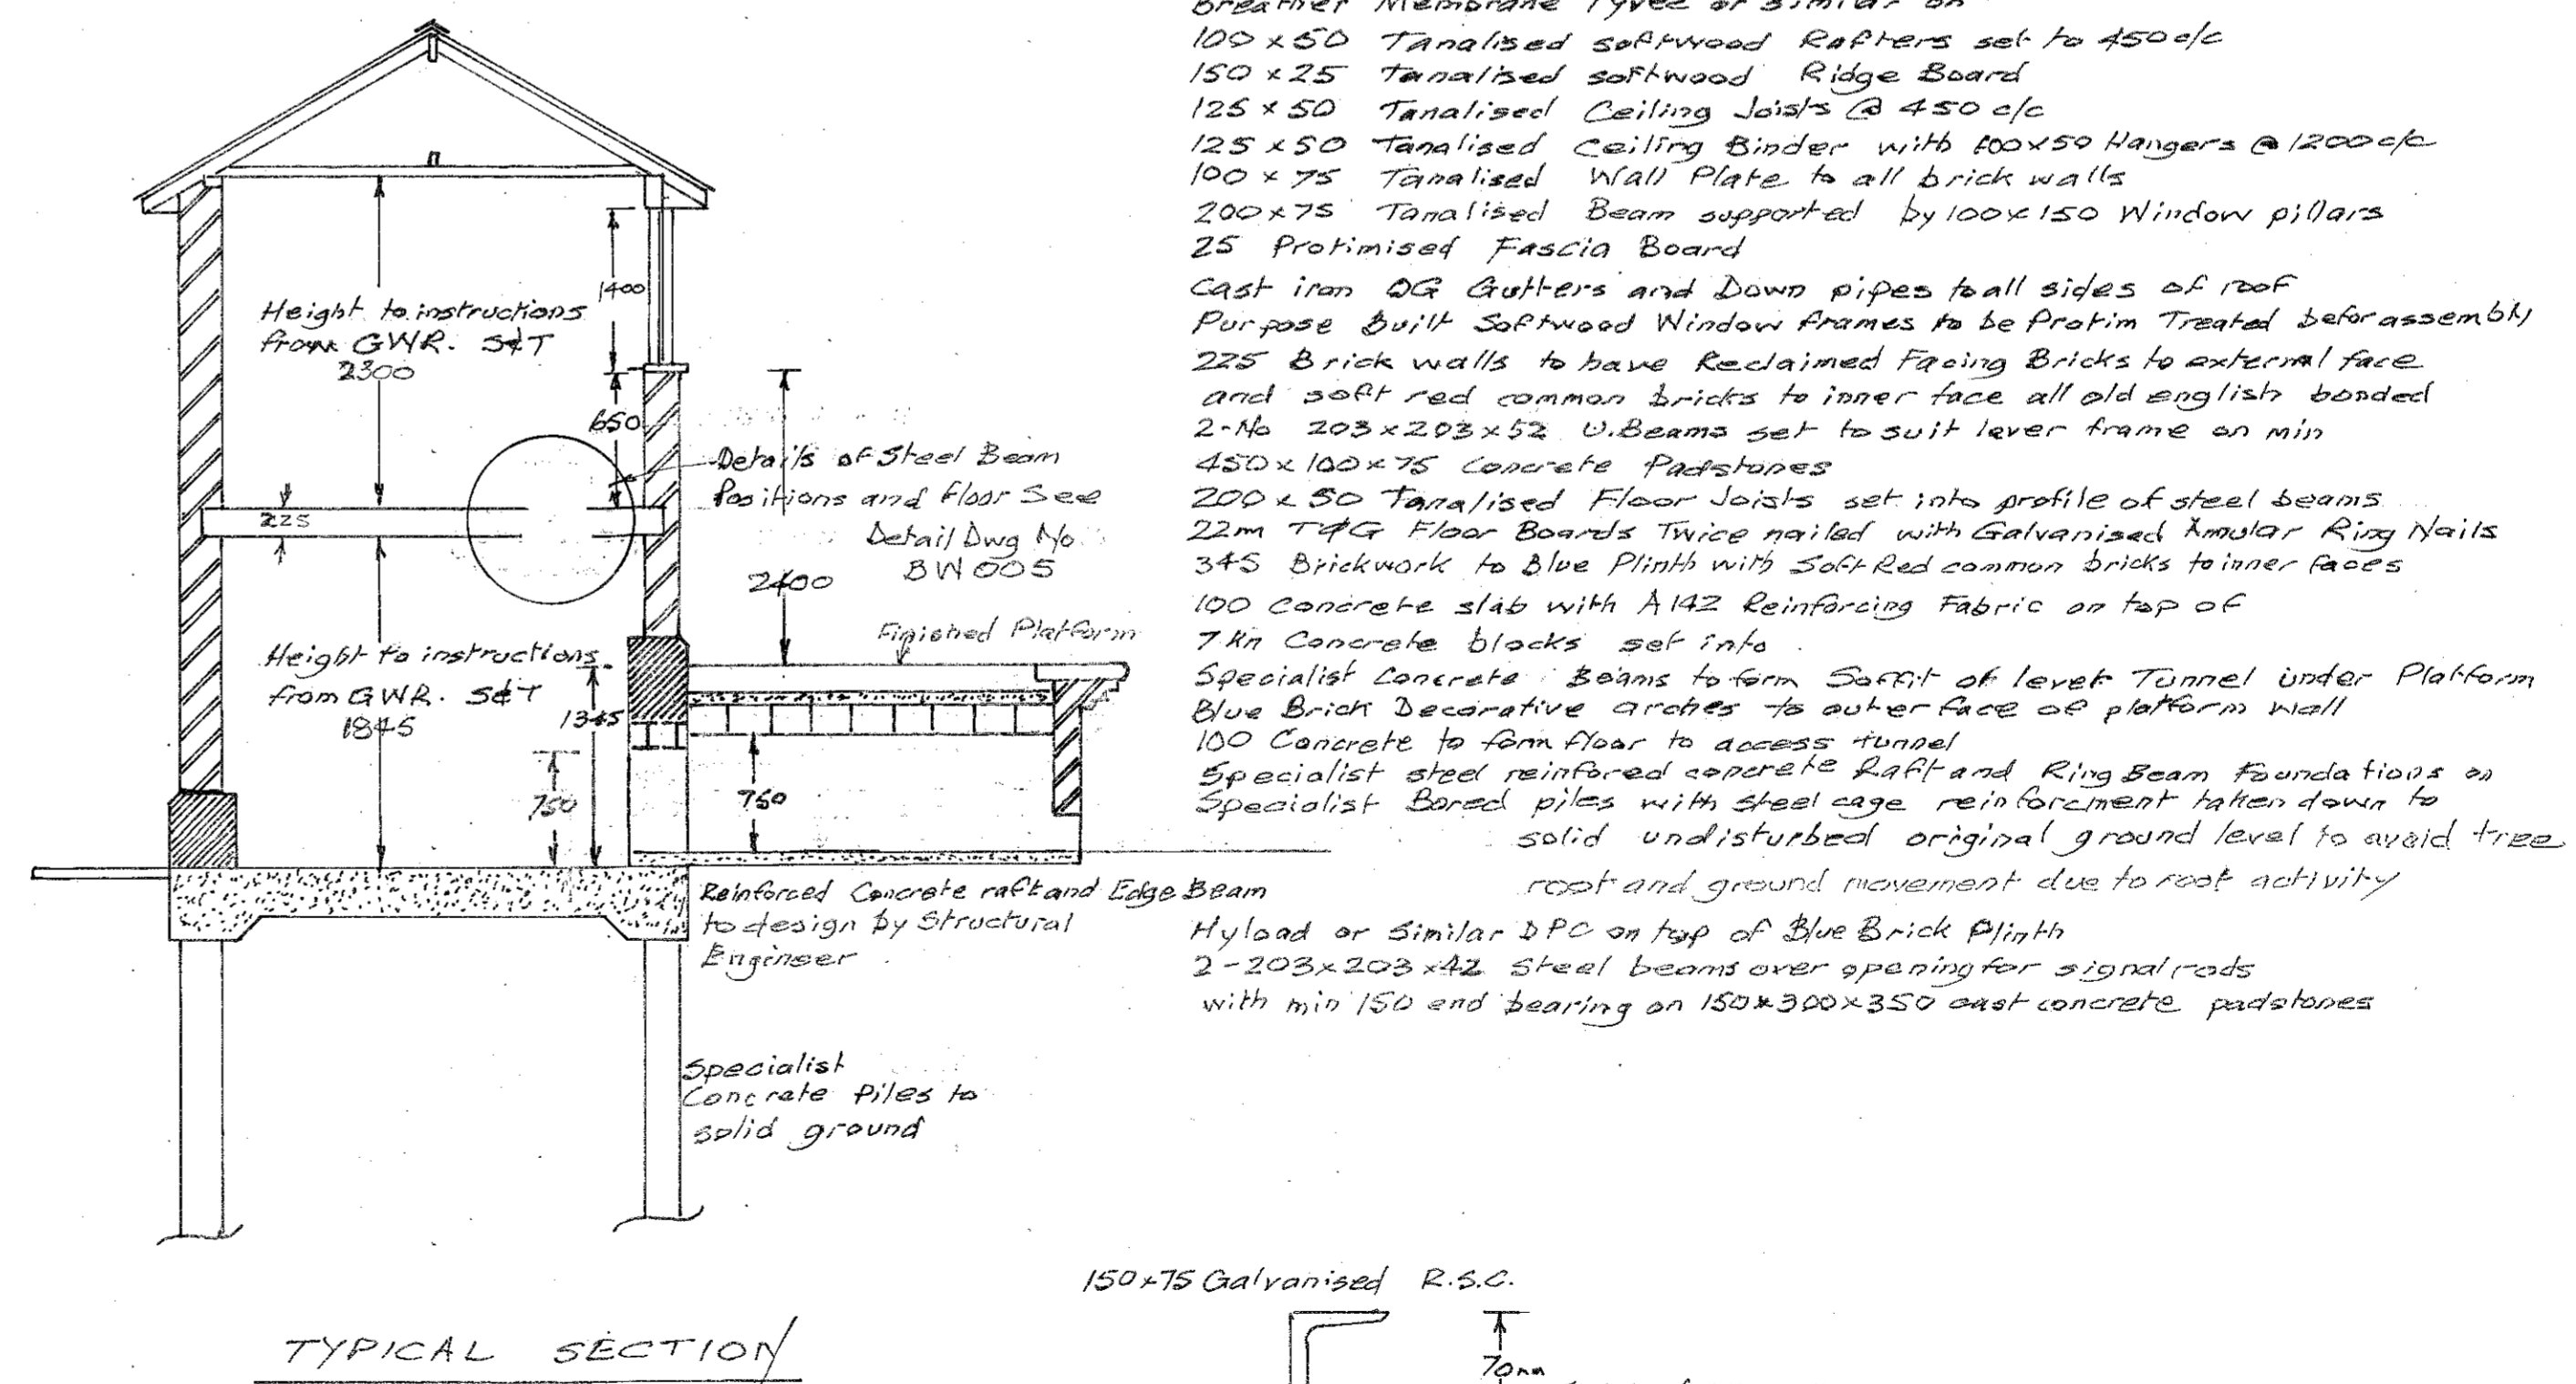 Breather Membrane Tyvec or similar on
100 x 50 Tanalised softwood Rafters set to 450 c/c
150 x 25 Tanalised softwood Ridge Board
125 x 50 Tanalised Ceiling Joists @ 450 c/c
125 x 50 Tanalised Ceiling Binder with 100x50 Hangers @ 1200 c/c
100 x 75 Tanalised Wall Plate to all brick walls
200 x 75 Tanalised Beam supported by 100 x 150 Window pillars
25 Protimised Fascia Board
Cast iron OG Gutters and Down pipes to all sides of roof
Purpose Built Softwood Window frames to be Protim Treated befor assembly
225 Brick walls to have Reclaimed Facing Bricks to external face
and soft red common bricks to inner face all old english bonded
2-No 203 x 203 x 52 U.Beams set to suit lever frame on min
450 x 100 x 75 Concrete Padstones
200 x 50 Tanalised Floor Joists set into profile of steel beams
22m T&G Floor Boards Twice nailed with Galvanised Anular Ring Nails
345 Brickwork to Blue Plinth with Soft Red common bricks to inner faces
100 Concrete slab with A142 Reinforcing Fabric on top of
7 Kn Concrete blocks set into
Specialist Concrete Beams to form Soffit of lever Tunnel under Platform
Blue Brick Decorative arches to outer face of platform wall
100 Concrete to form floor to access tunnel
Specialist steel reinfored concrete Raft and Ring Beam Foundations on
Specialist Bored piles with steel cage reinforcment taken down to
solid undisturbed original ground level to avoid tree
root and ground movement due to root activity
Hyload or Similar DPC on top of Blue Brick Plinth
2-203 x 203 x 42 Steel beams over opening for signal rods
with min 150 end bearing on 150 x 300 x 350 cast concrete padstones
Height to instructions
from GWR. S&T
2300
1400
650
225
Details of Steel Beam
Positions and Floor See
Detail Dwg No
BW 005
2400
Finished Platform
Height to instructions
from GWR. S&T
1845
1345
750
750
Reinforced Concrete raft and Edge Beam
to design by Structural
Engineer
Specialist
Concrete Piles to
solid ground
TYPICAL SECTION
150 x 75 Galvanised R.S.C.
70mm